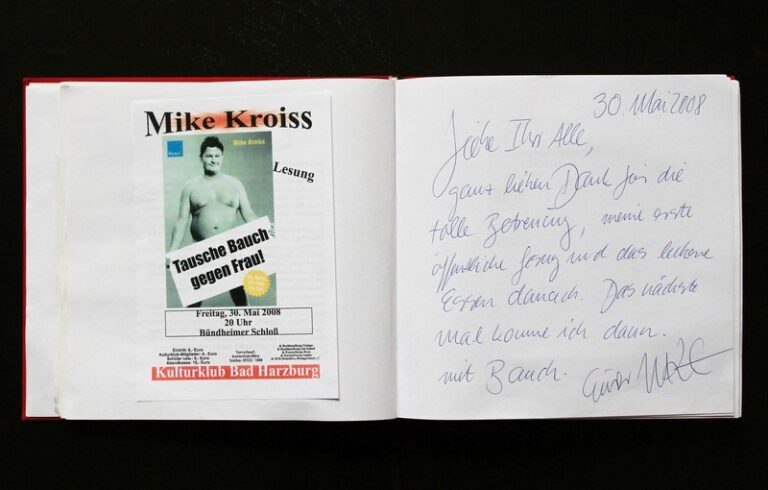 Mike Kroiss
Mike Kroiss
Lesung
Tausche Bauch
gegen Frau!
Freitag, 30. Mai 2008
20 Uhr
Bündheimer Schloß
Kulturklub Bad Harzburg
30. Mai 2008
Liebe Ihr Alle,
ganz lieben Dank für die
tolle Betreuung, meine erste
öffentliche Lesung und das leckere
Essen danach. Das nächste
mal komme ich dann.
mit Bauch.